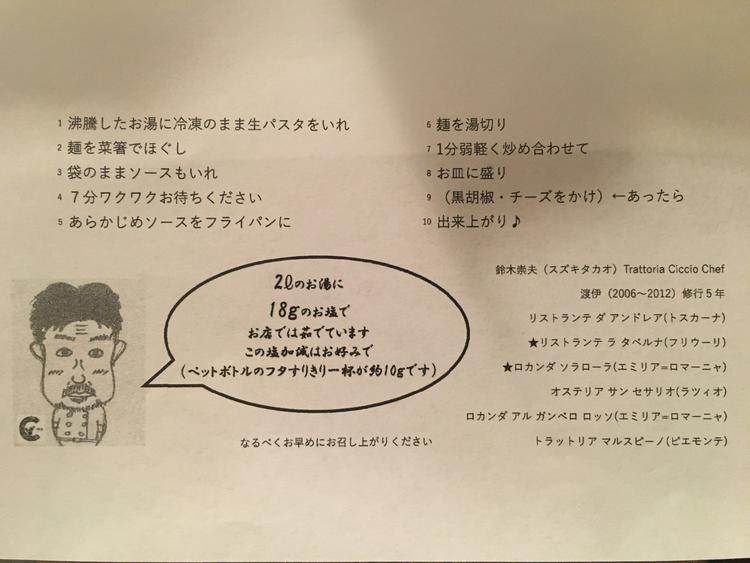 1 沸騰したお湯に冷凍のまま生パスタをいれ
2 麺を菜箸でほぐし
3 袋のままソースもいれ
4 7分ワクワクお待ちください
5 あらかじめソースをフライパンに
6 麺を湯切り
7 1分弱軽く炒め合わせて
8 お皿に盛り
9 （黒胡椒・チーズをかけ）←あったら
10 出来上がり♪
2ℓのお湯に
18gのお塩で
お店では茹でています
この塩加減はお好みで
(ペットボトルのフタすりきり一杯が約10gです)
なるべくお早めにお召し上がりください
鈴木崇夫（スズキタカオ）Trattoria Ciccio Chef
渡伊（2006〜2012）修行５年
リストランテ ダ アンドレア(トスカーナ)
★リストランテ ラ タベルナ(フリウーリ)
★ロカンダ ソラローラ(エミリア=ロマーニャ)
オステリア サン セサリオ(ラツィオ)
ロカンダ アル ガンベロ ロッソ(エミリア=ロマーニャ)
トラットリア マルスピーノ(ピエモンテ)